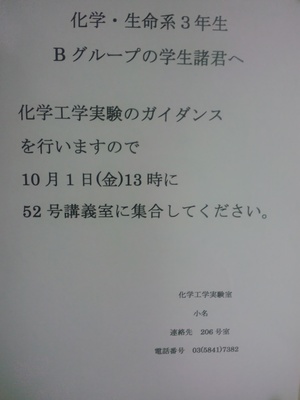 化学・生命系３年生
Ｂグループの学生諸君へ
化学工学実験のガイダンス
を行いますので
10月1日(金)13時に
52号講義室に集合してください。
化学工学実験室
小名
連絡先　206号室
電話番号　03(5841)7382